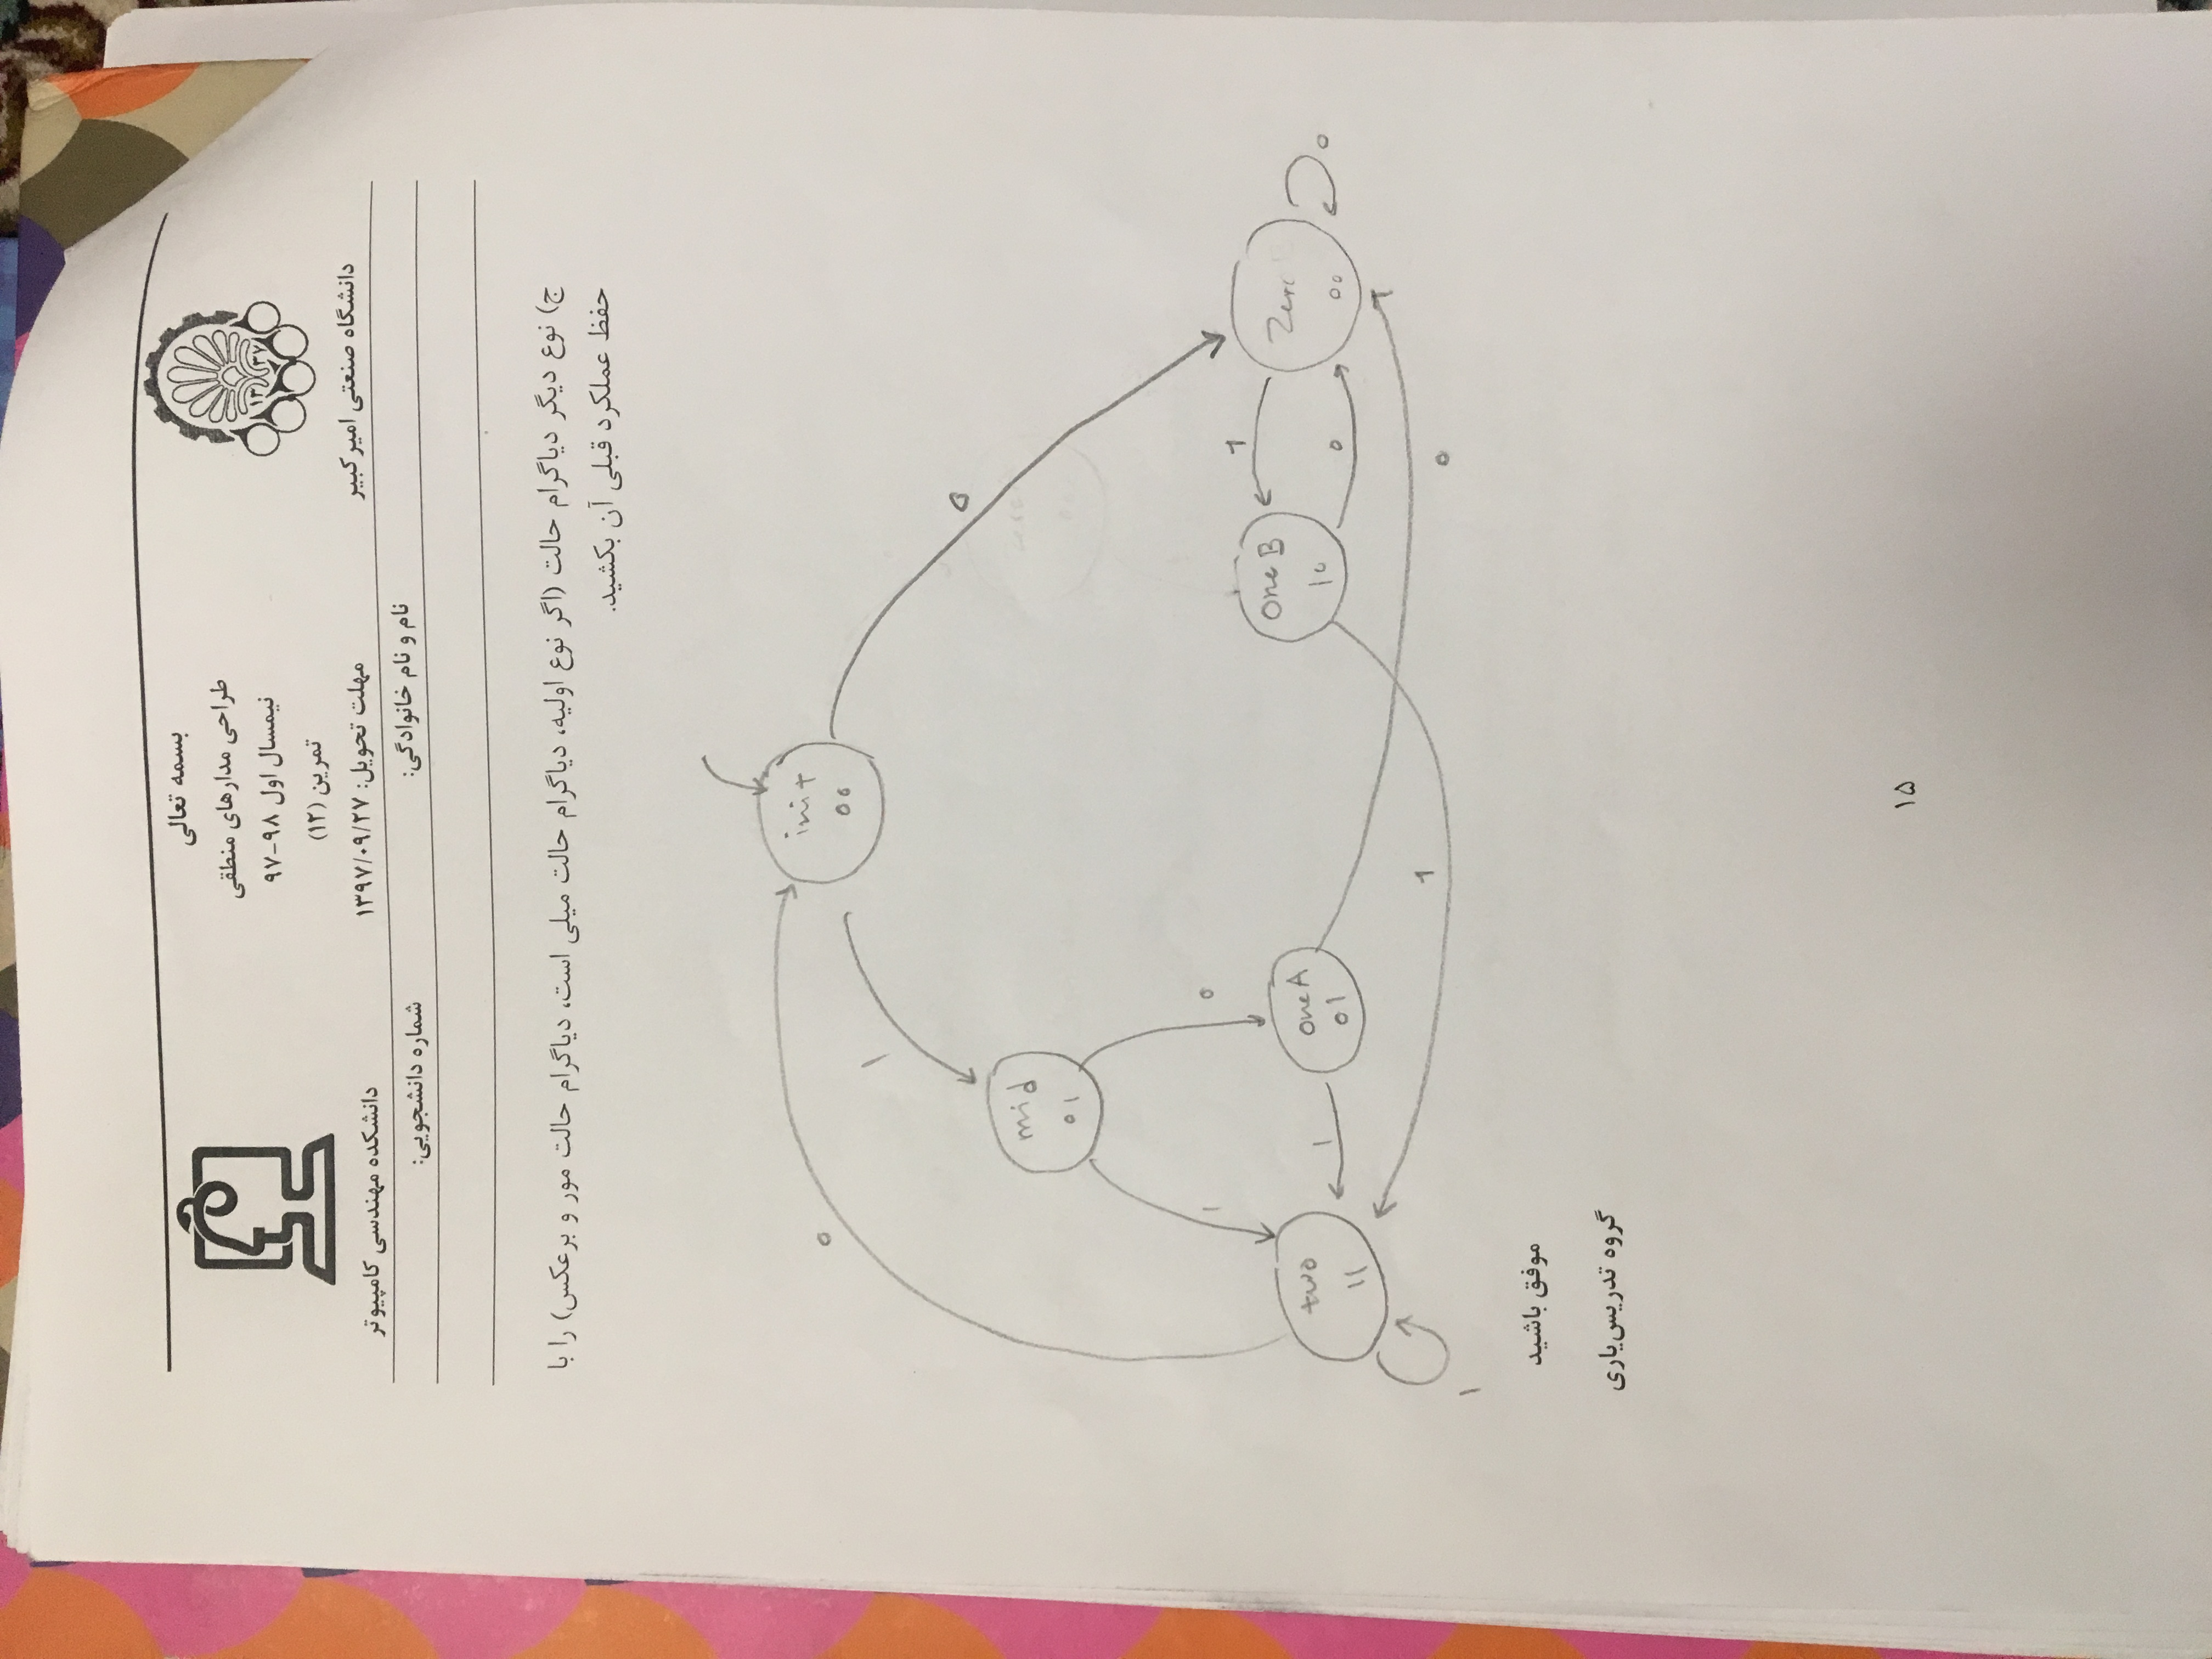 بسمه تعالی
طراحی مدارهای منطقی
نیمسال اول ۹۸-۹۷
تمرین (۱۲)
مهلت تحویل: ۱۳۹۷/۰۹/۲۷
۱۳ ۳۷
دانشگاه صنعتی امیرکبیر
دانشکده مهندسی کامپیوتر
نام و نام خانوادگی:
شماره دانشجویی:
ج) نوع دیگر دیاگرام حالت (اگر نوع اولیه، دیاگرام حالت میلی است، دیاگرام حالت مور و برعکس) را با
حفظ عملکرد قبلی آن بکشید.
init
00
0
1
0
mid
01
1
0
1
two
11
1
oneA
01
oneB
10
0
Zero
00
0
1
0
1
موفق باشید
گروه تدریس‌یاری
۱۵